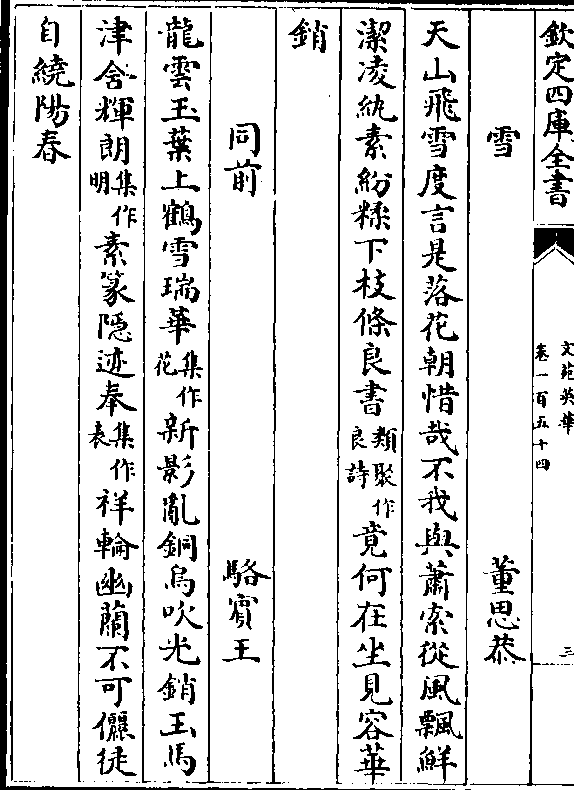 欽定四庫全書
文苑英華
卷一百五十四
三
雪 董思恭
天山飛雪度言是落花朝惜哉不我與蕭索從風飄鮮
潔凌紈素紛糅下枝條良書類聚作良詩竟何在坐見容華
銷
同前 駱賓王
龍雲玉葉上鶴雪瑞華集作花新影亂銅烏吹光銷玉馬
津含輝朗集作明素篆隱迹奉集作表祥輪幽蘭不可儷徒
自繞陽春